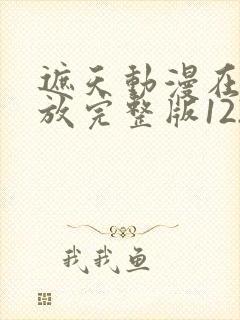 遮天動漫在
放完整版12
我我鱼